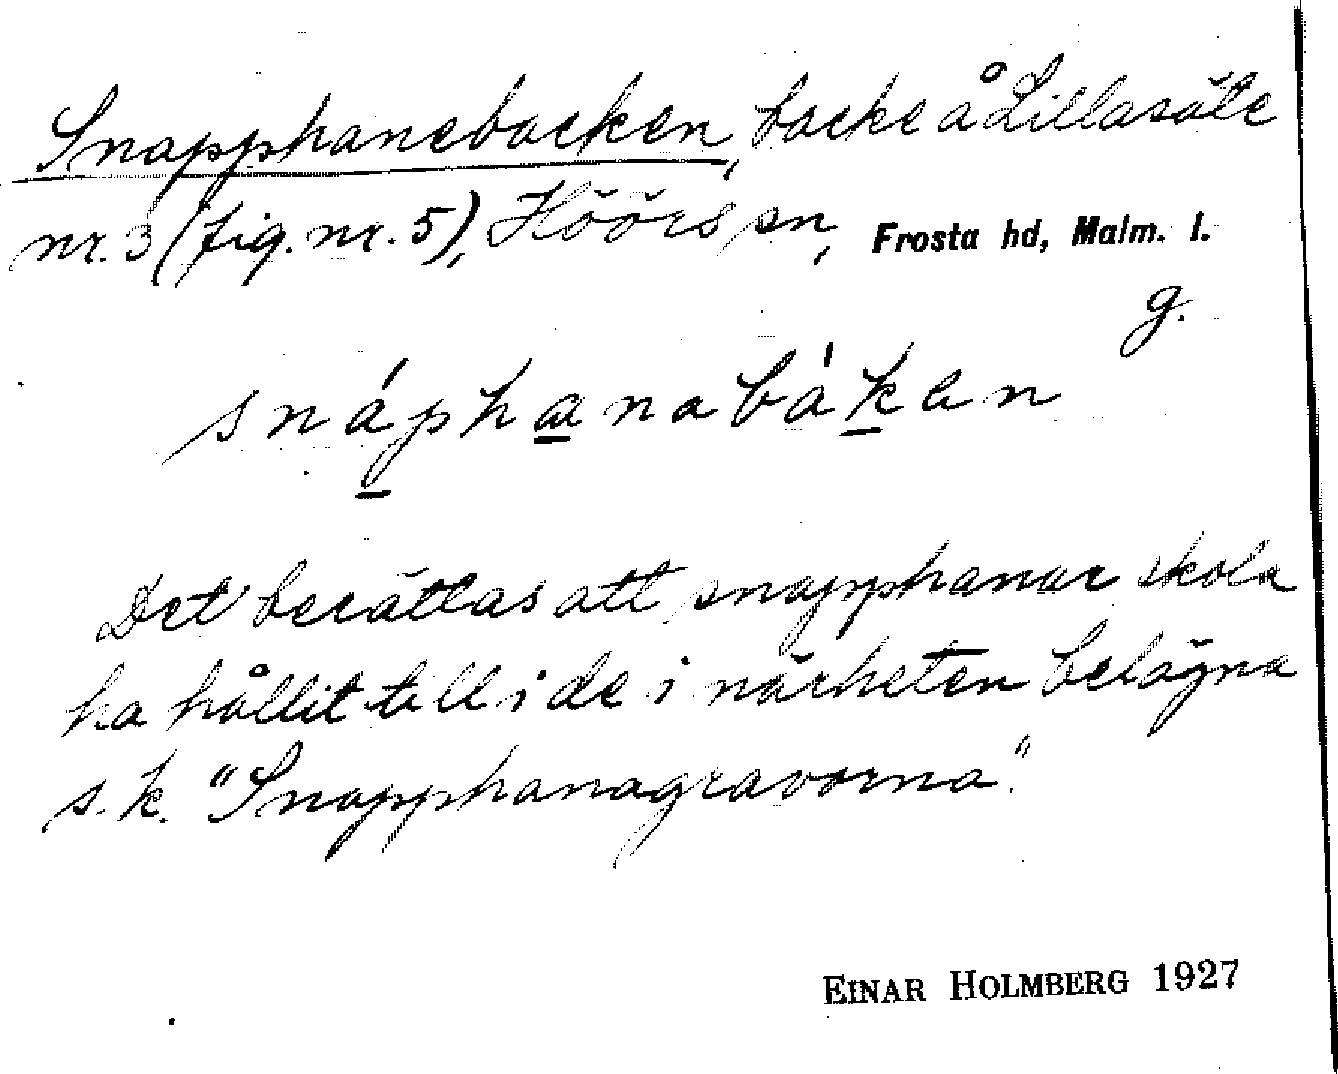 Snapphanebacken, backe å Lillasäte
nr. 3 (fig. nr. 5), Höörs sn, Frosta hd, Malm. l.
g.
snáphanabàkan
Det berättas att snapphanar skola
ha hållit till i de i närheten belägna
s.k. "Snapphanagravarna".
EINAR HOLMBERG 1927